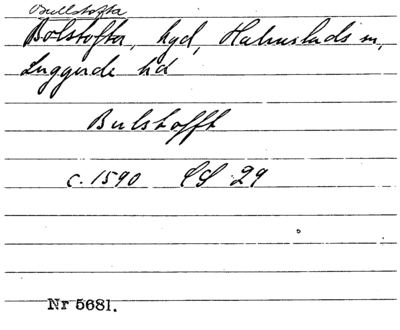 Bullstofta
Bölstofta, hgd, Halmstads sn,
Luggude hd
Bulstofft
c. 1590 LS 29
Nr 5681.